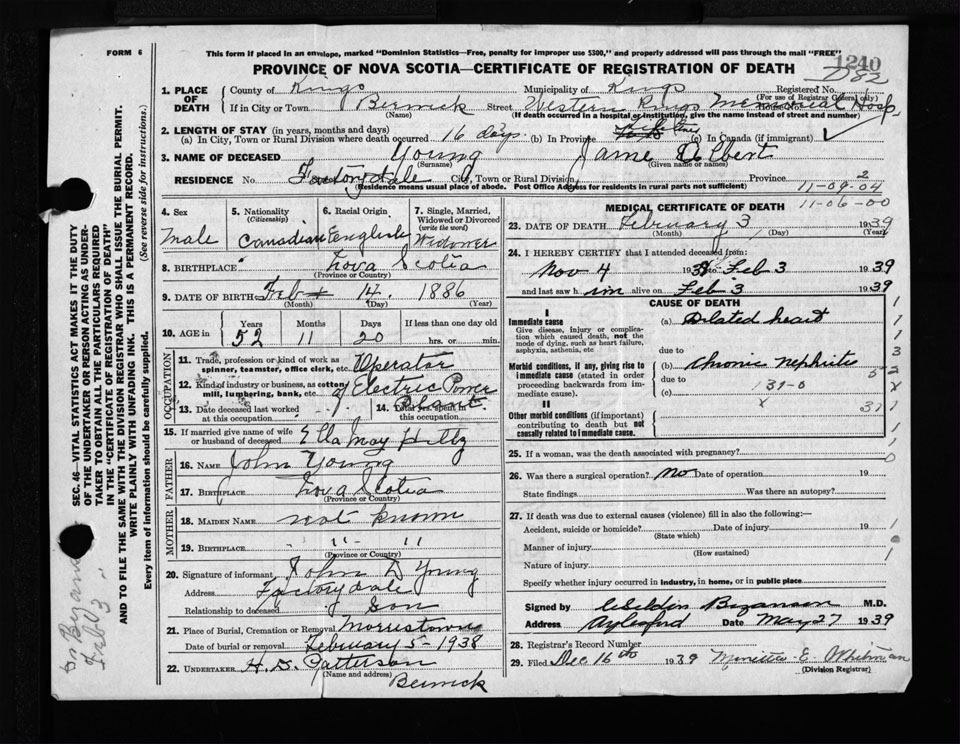 FORM 6
This form if placed in an envelope, marked "Dominion Statistics—Free, penalty for improper use $300," and properly addressed will pass through the mail "FREE"
1240
PROVINCE OF NOVA SCOTIA—CERTIFICATE OF REGISTRATION OF DEATH
1. PLACE OF DEATH County of Kings Municipality of Kings Registered No.
(For use of Registrar General only)
If in City or Town Berwick Street Western Kings Memorial Hosp. House No.
(Name) (If death occurred in a hospital or institution, give the name instead of street and number)
2. LENGTH OF STAY (in years, months and days)
(a) In City, Town or Rural Division where death occurred 16 days (b) In Province Lifetime (c) In Canada (if immigrant)
3. NAME OF DECEASED Young Jame Albert
(Surname) (Given name or names)
RESIDENCE No. Factorydale City, Town or Rural Division Province 2
(Residence means usual place of abode. Post Office Address for residents in rural parts not sufficient) 11-09-04
11-06-00
4. Sex Male
5. Nationality (Citizenship) Canadian
6. Racial Origin English
7. Single, Married, Widowed or Divorced (write the word) Widower
8. BIRTHPLACE Nova Scotia
(Province or Country)
9. DATE OF BIRTH Feb 14 1886
(Month) (Day) (Year)
10. AGE in Years Months Days If less than one day old
52 11 20 hrs. or min.
OCCUPATION
11. Trade, profession or kind of work as spinner, teamster, office clerk, etc. Operator
12. Kind of industry or business, as cotton mill, lumbering, bank, etc. of Electric Power Plant
13. Date deceased last worked at this occupation
14. Total yrs. spent in this occupation
15. If married give name of wife or husband of deceased Ella May
FATHER
16. NAME John Young
17. BIRTHPLACE Nova Scotia
(Province or Country)
MOTHER
18. MAIDEN NAME not known
19. BIRTHPLACE " "
(Province or Country)
20. Signature of informant John D Young
Address Factorydale
Relationship to deceased Son
21. Place of Burial, Cremation or Removal Morristown
Date of burial or removal February 5- 1938
22. UNDERTAKER H. D. Patterson
(Name and address) Berwick
MEDICAL CERTIFICATE OF DEATH
23. DATE OF DEATH February 3 1939
(Month) (Day) (Year)
24. I HEREBY CERTIFY that I attended deceased from:
Nov 4 193 to Feb 3 1939
and last saw him alive on Feb 3 1939
CAUSE OF DEATH
I
Immediate cause (a) Dilated heart
Give disease, injury or complication which caused death, not the mode of dying, such as heart failure, asphyxia, asthenia, etc
due to
Morbid conditions, if any, giving rise to immediate cause (stated in order proceeding backwards from immediate cause).
(b) Chronic nephritis
due to 131-0
(c)
II
Other morbid conditions (if important) contributing to death but not causally related to immediate cause.
25. If a woman, was the death associated with pregnancy?
26. Was there a surgical operation? No Date of operation 19
State findings Was there an autopsy?
27. If death was due to external causes (violence) fill in also the following:—
Accident, suicide or homicide? Date of injury 19
(State which)
Manner of injury
(How sustained)
Nature of injury
Specify whether injury occurred in industry, in home, or in public place
Signed by Bezanson M.D.
Address Aylesford Date May 27 1939
28. Registrar's Record Number
29. Filed Dec 16th 1939 E. Whitman
(Division Registrar)
SEC. 46—VITAL STATISTICS ACT MAKES IT THE DUTY OF THE UNDERTAKER OR PERSON ACTING AS UNDERTAKER TO OBTAIN ALL THE PARTICULARS REQUIRED IN THE "CERTIFICATE OF REGISTRATION OF DEATH"
AND TO FILE THE SAME WITH THE DIVISION REGISTRAR WHO SHALL ISSUE THE BURIAL PERMIT.
WRITE PLAINLY WITH UNFADING INK. THIS IS A PERMANENT RECORD.
Every item of information should be carefully supplied. (See reverse side for instructions.)